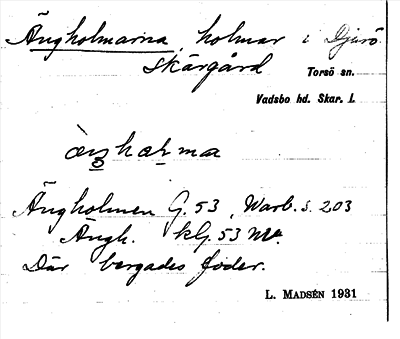 Ängholmarna, holmar i Djurö
skärgård Torsö sn.
Vadsbo hd. Skar. l.
Ängholmen G. 53, Warb. s. 203
Ängh. klg. 53
Där bergades foder.
L. MADSÉN 1931